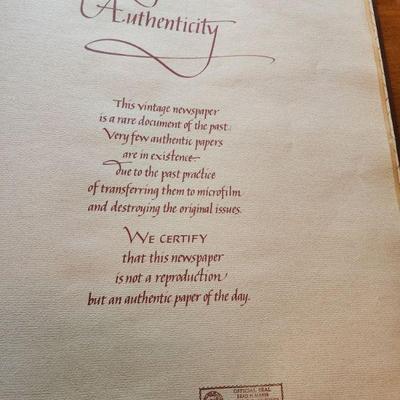 Authenticity
This vintage newspaper
is a rare document of the past.
Very few authentic papers
are in existence
due to the past practice
of transferring them to microfilm
and destroying the original issues.
WE CERTIFY
that this newspaper
is not a reproduction
but an authentic paper of the day.
OFFICIAL SEAL